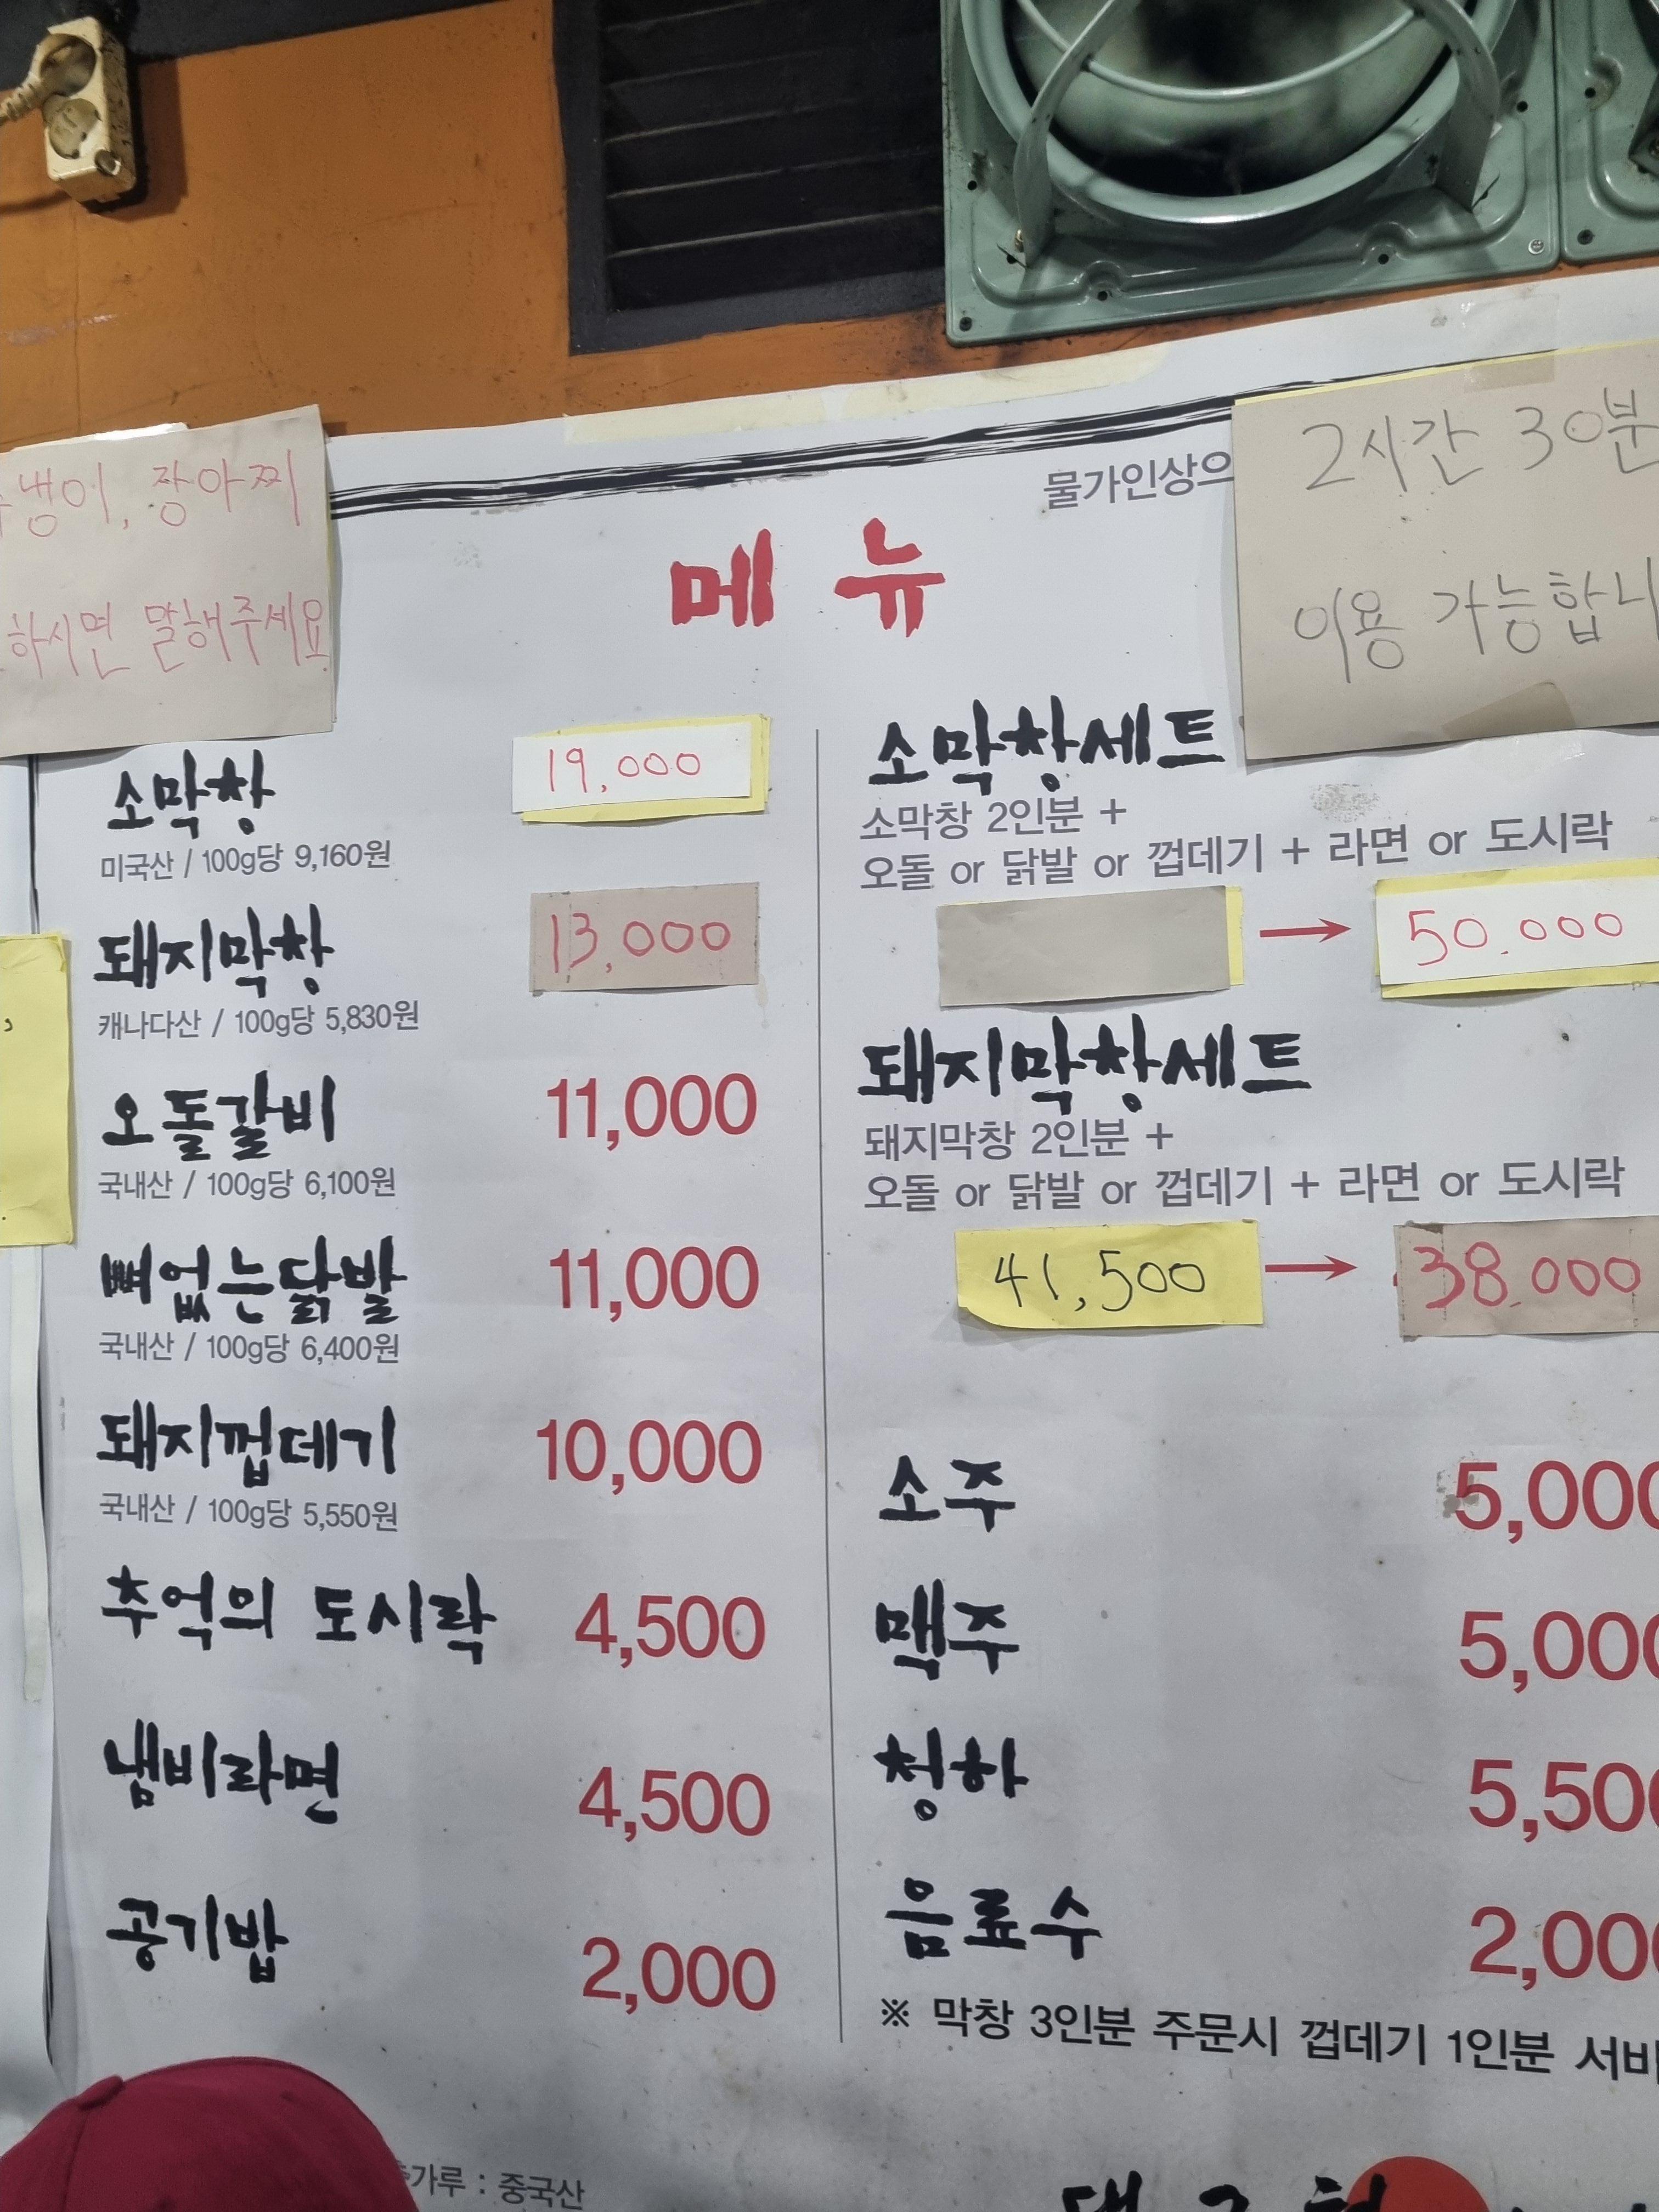 냉이, 장아찌
하시면 말해주세요
물가인상으
2시간 30분
이용 가능합니
메뉴
소막창 19,000
미국산 / 100g당 9,160원
돼지막창 13,000
캐나다산 / 100g당 5,830원
오돌갈비 11,000
국내산 / 100g당 6,100원
뼈없는닭발 11,000
국내산 / 100g당 6,400원
돼지껍데기 10,000
국내산 / 100g당 5,550원
추억의 도시락 4,500
냄비라면 4,500
공기밥 2,000
소막창세트
소막창 2인분 +
오돌 or 닭발 or 껍데기 + 라면 or 도시락
→ 50.000
돼지막창세트
돼지막창 2인분 +
오돌 or 닭발 or 껍데기 + 라면 or 도시락
41,500 → 38.000
소주 5,000
맥주 5,000
청하 5,500
음료수 2,000
※ 막창 3인분 주문시 껍데기 1인분 서비
가루 : 중국산